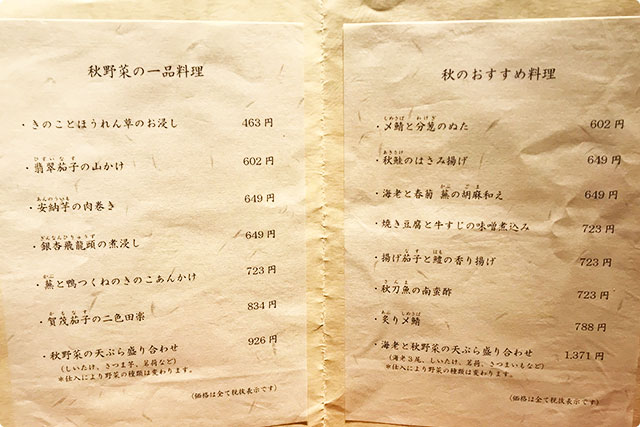 秋野菜の一品料理
・きのことほうれん草のお浸し 463円
ひすいなす
・翡翠茄子の山かけ 602円
あんのういも
・安納芋の肉巻き 649円
ぎんなんひりゅうず
・銀杏飛龍頭の煮浸し 649円
かぶ
・蕪と鴨つくねのきのこあんかけ 723円
かもなす
・賀茂茄子の二色田楽 834円
・秋野菜の天ぷら盛り合わせ 926円
(しいたけ、さつま芋、茗荷など)
※仕入により野菜の種類は変わります。
(価格は全て税抜表示です)
秋のおすすめ料理
しめさば わけぎ
・〆鯖と分葱のぬた 602円
あきさけ
・秋鮭のはさみ揚げ 649円
かぶ ごま
・海老と春菊 蕪の胡麻和え 649円
・焼き豆腐と牛すじの味噌煮込み 723円
なす はも
・揚げ茄子と鱧の香り揚げ 723円
さんま
・秋刀魚の南蛮酢 723円
あぶ しめさば
・炙り〆鯖 788円
・海老と秋野菜の天ぷら盛り合わせ 1,371円
(海老3尾、しいたけ、茗荷、さつまいもなど)
※仕入により野菜の種類は変わります。
(価格は全て税抜表示です)